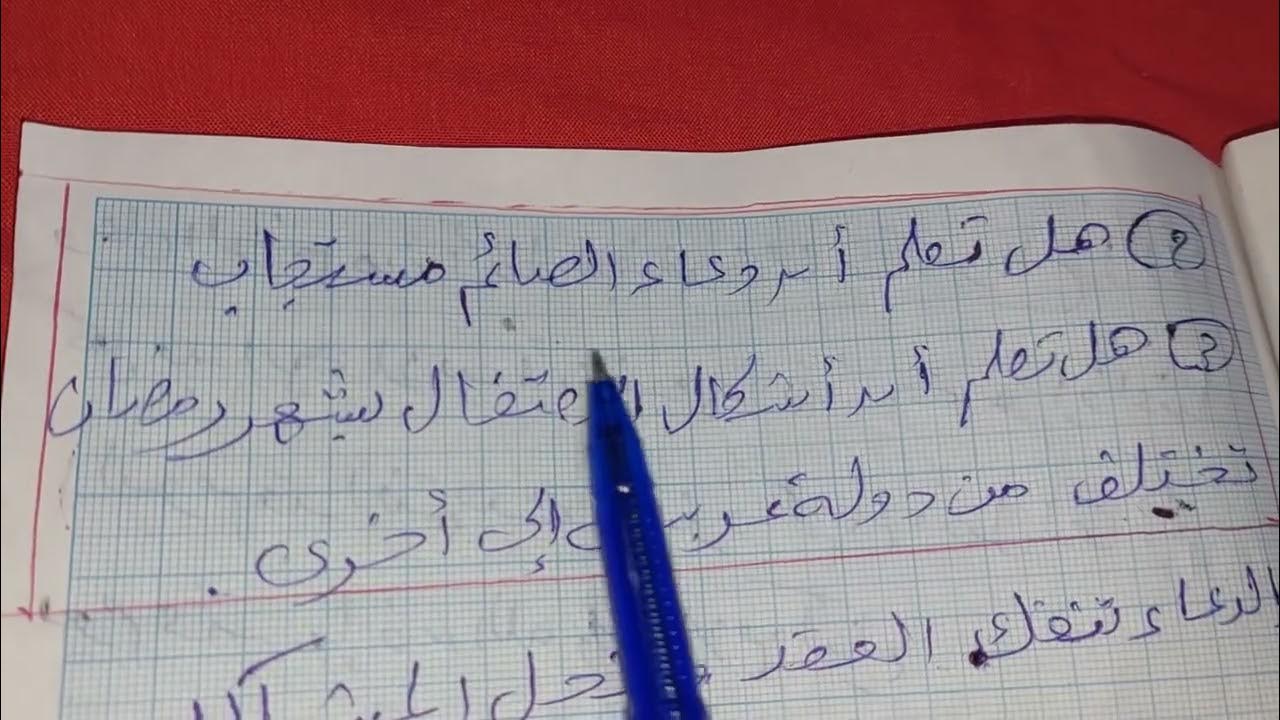 ② هل تعلم أن دعاء الصائم مستجاب
③ هل تعلم أن أشكال الاحتفال بشهر رمضان
تختلف من دولة عربية إلى أخرى .
الدعاء تفك العقد